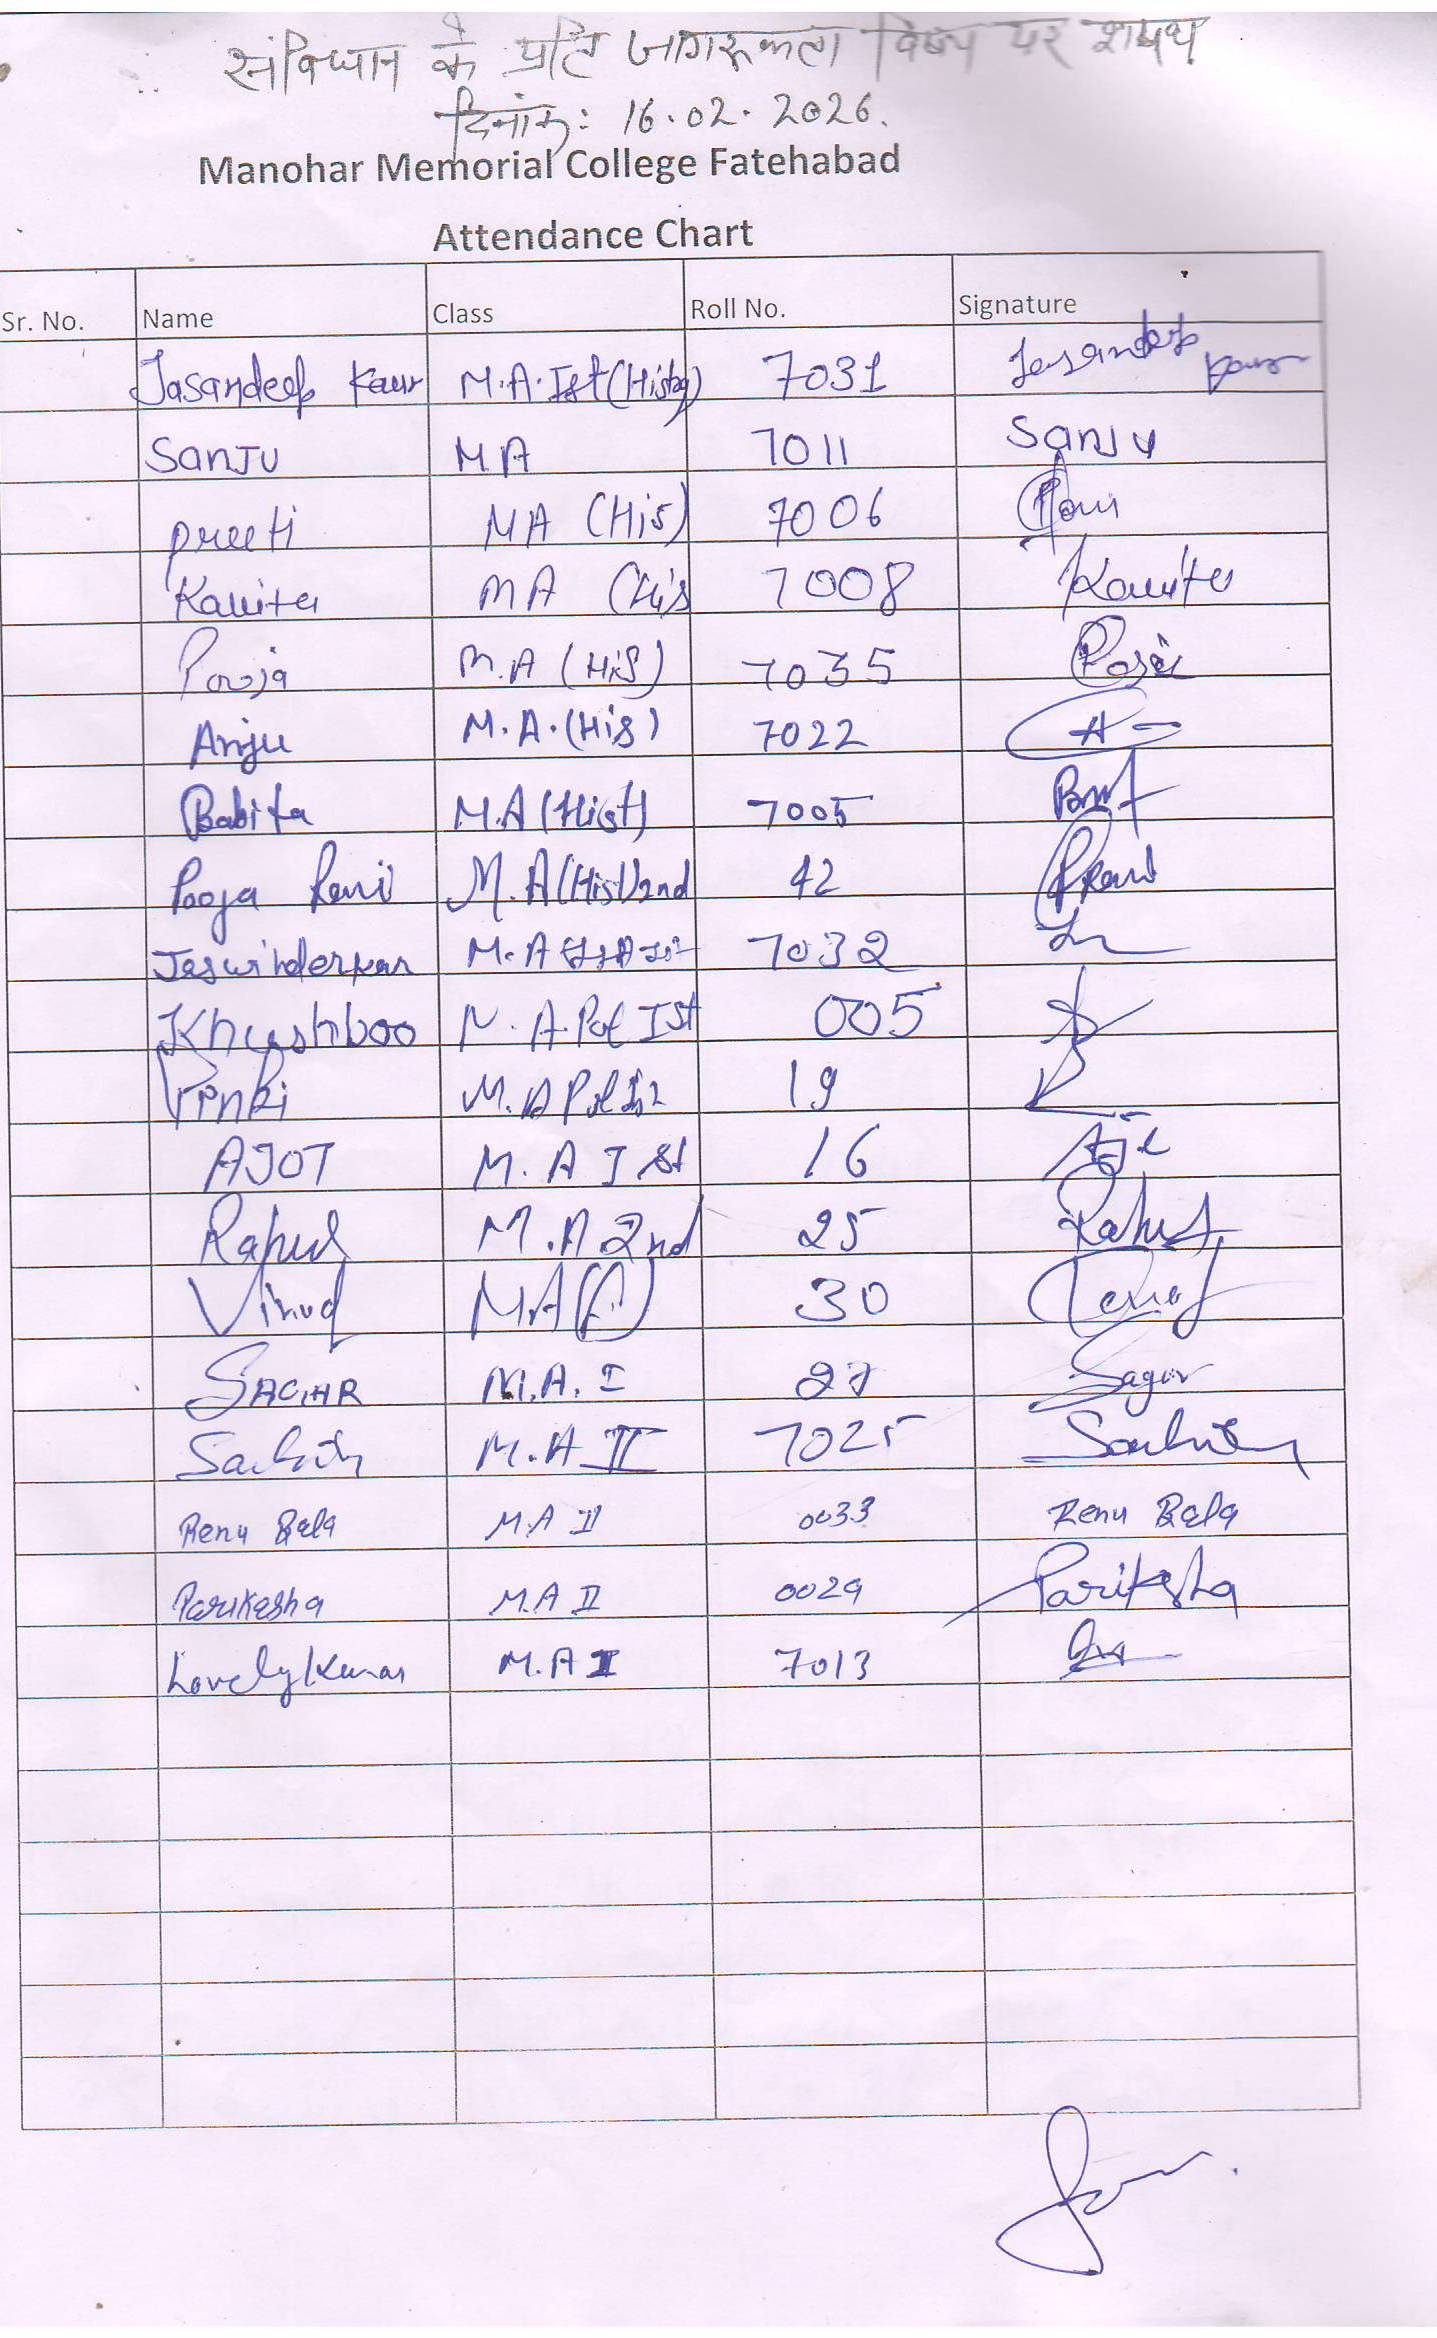 संविधान के प्रति जागरूकता विषय पर शपथ
दिनांक: 16.02.2026.
Manohar Memorial College Fatehabad
Attendance Chart
Sr. No. Name Class Roll No. Signature
Jasandeep Kaur M.A.Ist (History) 7031 Jasandeep Kaur
Sanju MA 7011 Sanju
preeti MA (His) 7006
Kavita MA (His 7008 Kavita
Pooja M.A (His) 7035 Pooja
Anju M.A.(His) 7022 A
Babita M.A (Hist) 7005
Pooja Rani M.A (Hist) 2nd 42 PRani
Jaswinderkaur M.A 7032
Khushboo M.A.Pol Ist 005
Pinki M.A Pol 19
AJOT M.A I st 16
Rahul M.A 2nd 25 Rahul
Vinod MA 30
SAGAR M.A. I 27 Sagar
M.A II 7025
Renu Bala M.A II 0033 Renu Bala
Parikesha M.A II 0029 Pariksha
Lovely Kumar M.A I 7013